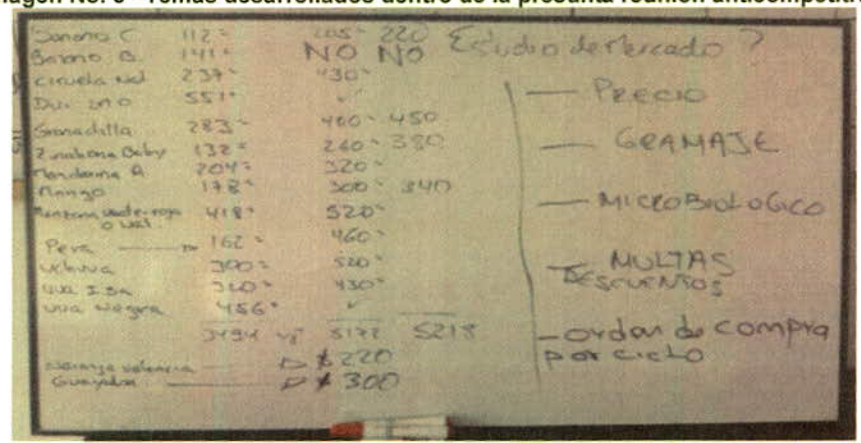 Imagen No. 8 - Temas desarrollados dentro de la presunta reunión anticompetitiva
Banano C. 112 205 - 220
Banano B. 141 NO NO
Ciruela Nal 237 430
Durazno 551 ✓
Granadilla 283 400 - 450
Zanahoria Baby 132 260 - 380
Mandarina A 204 320
Mango 178 300 - 340
Manzana verde-roja 418 520
o Nal.
Pera 162 460
Uchuva 300 520
Uva Isa 320 430
Uva Negra 456 ✓
3494 5172 5218
Naranja valencia $220
Guayaba $300
Estudio de Mercado ?
— PRECIO
— GRAMAJE
— MICROBIOLOGICO
— MULTAS
DESCUENTOS
— orden de compra
por ciclo